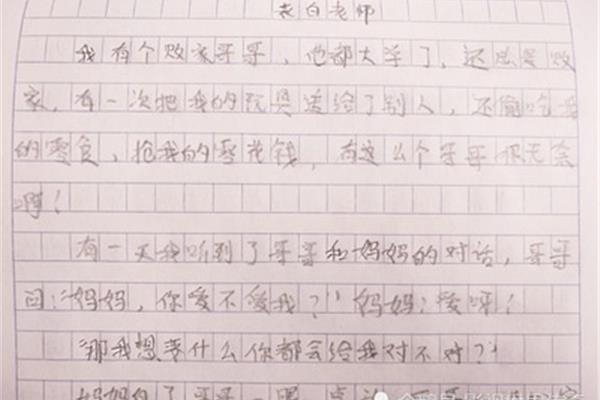 表白老师
我有个败家哥哥，他都大学了，还总是败
家，有一次把我的玩具送给了别人，还偷吃我
的零食，抢我的零花钱，有这么个哥哥很无奈
啊！
有一天我听到了哥哥和妈妈的对话，哥哥
问："妈妈，你爱不爱我？"妈妈：爱呀！
"那我想要什么你都会给我对不对？"
妈妈白了哥哥一眼